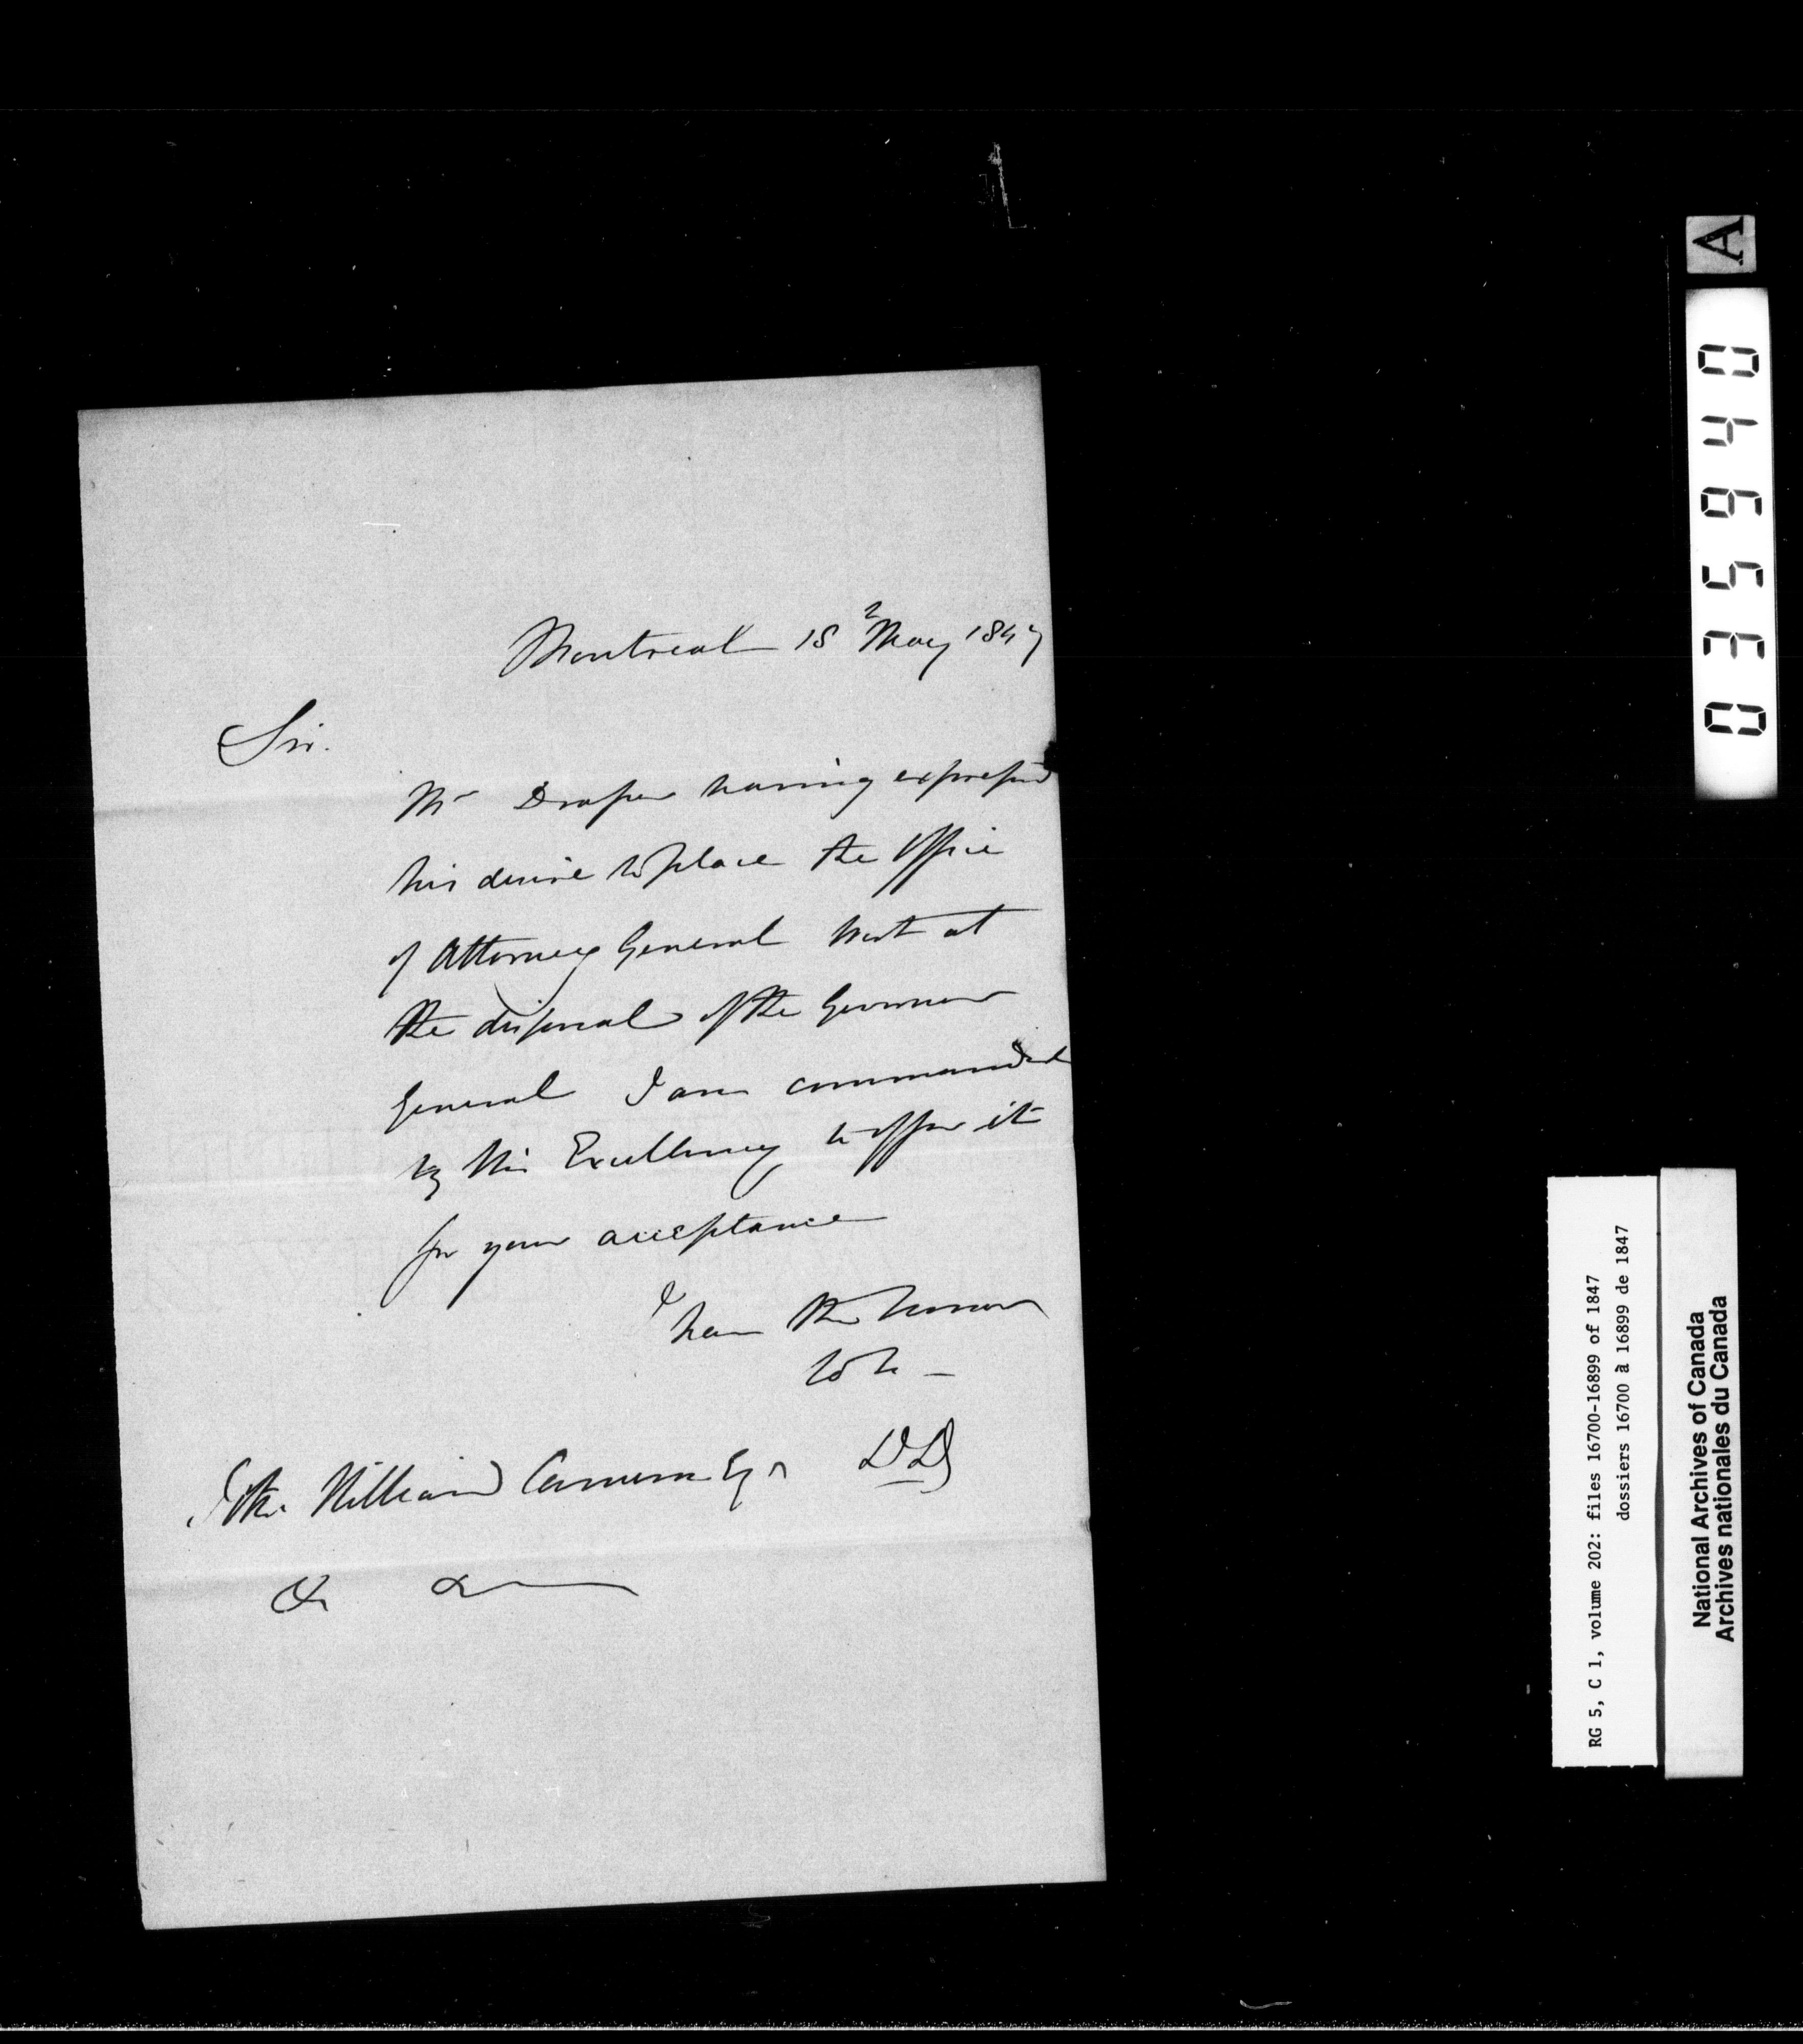 Montreal 18th May 1847
Sir.
Mr Draper having expressed
his desire to place the Office
of Attorney General West at
the disposal of the Governor
General I am commanded
by His Excellency to offer it
for your acceptance
I have the honor
to be —
DD
William Cameron Esqr
&c &c
A
035640
RG 5, C 1, volume 202: files 16700-16899 of 1847
dossiers 16700 à 16899 de 1847
National Archives of Canada
Archives nationales du Canada